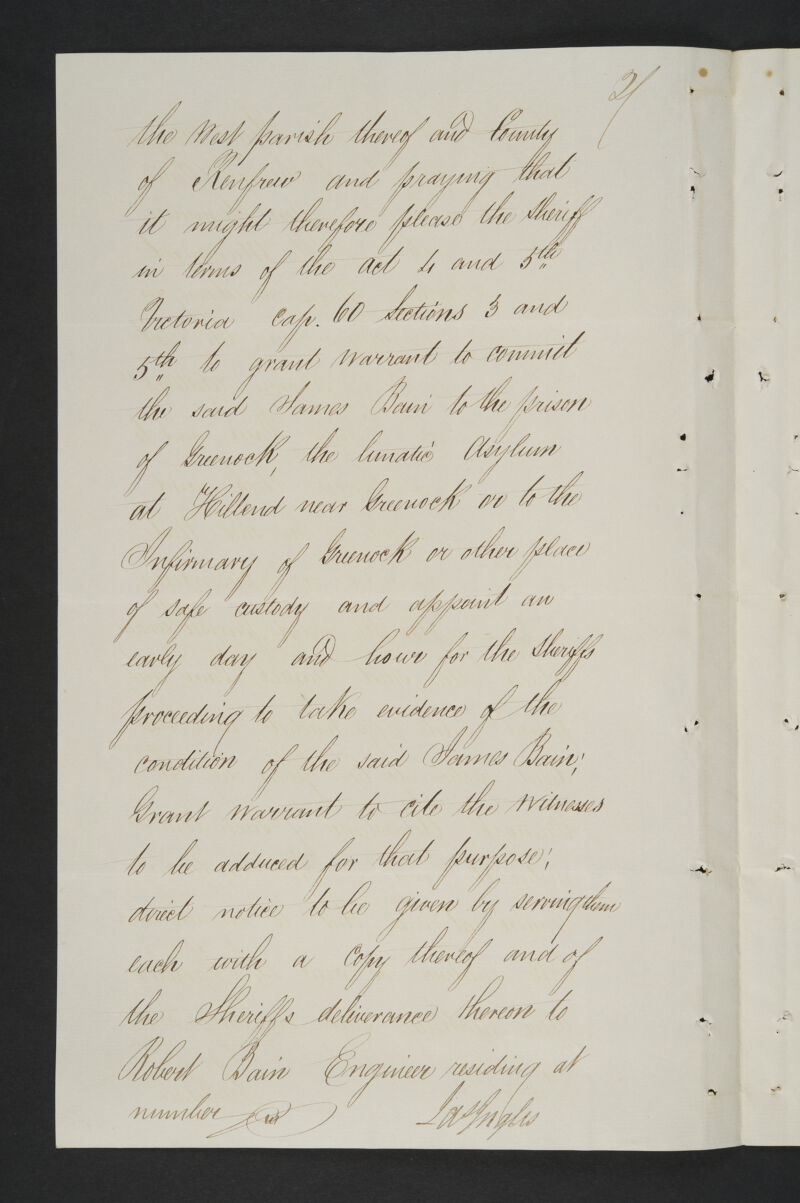 2/
the West parish thereof and County
of Renfrew and praying that
it might therefore please the Sheriff
in terms of the act 4 and 5th
Victoria cap. 60 Sections 3 and
5th to grant Warrant to commit
the said James Bain to the prison
of Greenock, the lunatic Asylum
at Hillend near Greenock or to the
Infirmary of Greenock or other place
of safe custody and appoint an
early day and hour for the Sheriffs
proceeding to take evidence of the
condition of the said James Bain;
Grant Warrant to cite the Witnesses
to be adduced for that purpose;
direct notice to be given by serving them
each with a Copy thereof and of
the Sheriffs deliverance thereon to
Robert Bain Engineer residing at
number
Jas Inglis